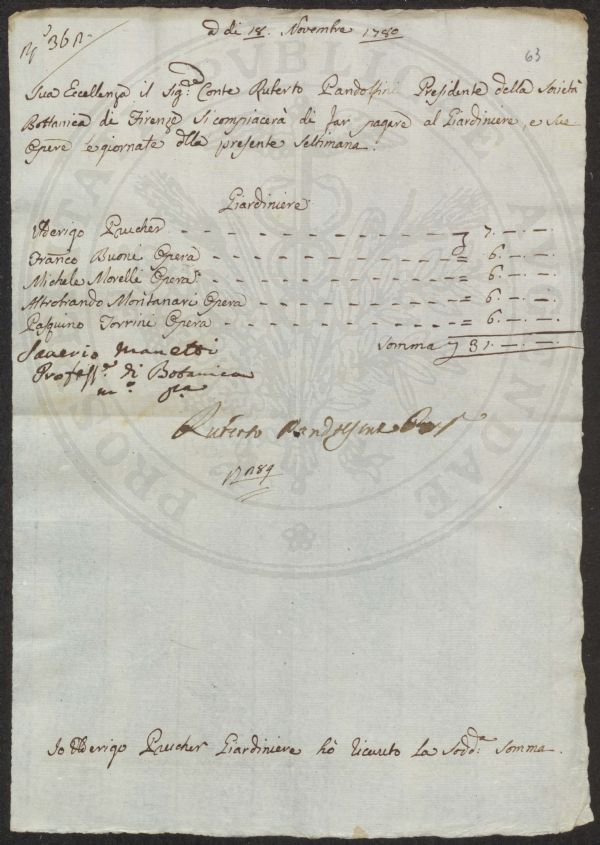 N.º 362
A di 18. Novembre 1780
63
Sua Eccellenza il Sig.e Conte Ruberto Pandolfini Presidente della Società
Bottanica di Firenze si compiacerà di far pagare al Giardiniere, e sue
Opere e giornate dlla presente Settimana.
Giardiniere
Ulderigo Prucher - - - 7. — . —
Franco Buoni Opera - - - = 6. — . —
Michele Morelli Opera - - - = 6. — . —
Montanari Opera - - - = 6. — . —
Pasquino Torrini Opera - - - = 6. — . —
Saverio Manetti
Somma 31. — . —
Profess.re di Botanica
m.o p.a
Ruberto Pandolfini Pres
Io Ulderigo Prucher Giardiniere hò ricevuto la Sodd.a Somma.